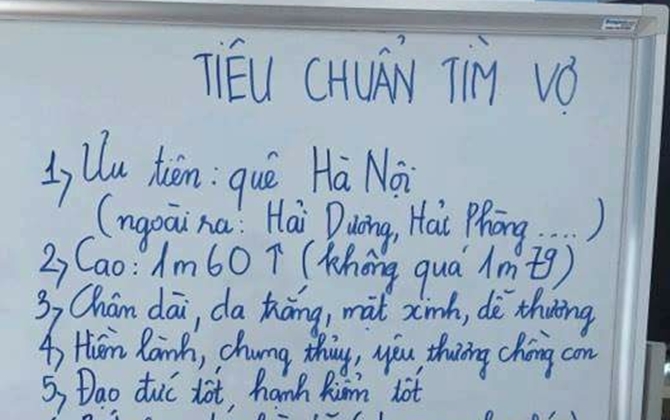 TIÊU CHUẨN TÌM VỢ
1, Ưu tiên: quê Hà Nội
(ngoài ra: Hải Dương, Hải Phòng ....)
2, Cao: 1m60 ↑ (không quá 1m79)
3, Chân dài, da trắng, mặt xinh, dễ thương
4, Hiền lành, chung thủy, yêu thương chồng con
5, Đạo đức tốt, hạnh kiểm tốt